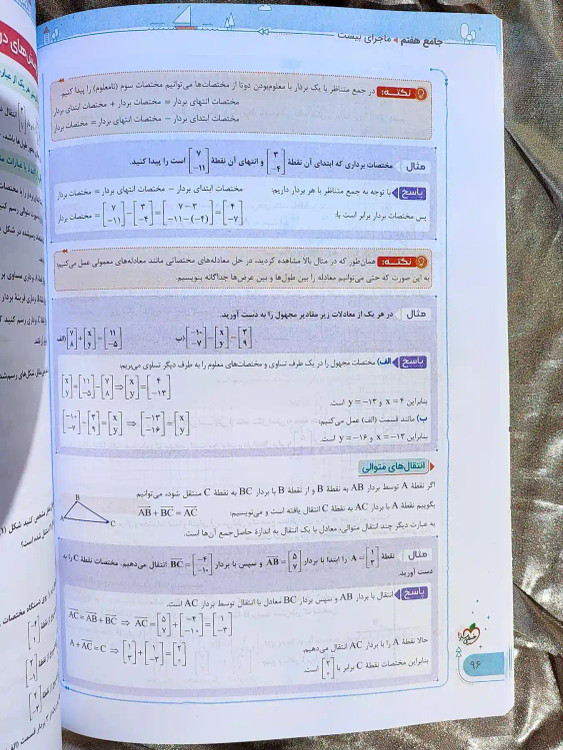 جامع هفتم • ماجرای بیست
نکته: در جمع متناظر با یک بردار با معلوم‌بودن دوتا از مختصات‌ها می‌توانیم مختصات سوم (نامعلوم) را پیدا کنیم.
مختصات انتهای بردار = مختصات بردار + مختصات ابتدای بردار
مختصات ابتدای بردار − مختصات انتهای بردار = مختصات بردار
مثال مختصات برداری که ابتدای آن نقطهٔ [۳ −۴] و انتهای آن نقطهٔ [۷ −۱۱] است را پیدا کنید.
پاسخ با توجه به جمع متناظر با هر بردار داریم: مختصات ابتدای بردار − مختصات انتهای بردار = مختصات بردار
پس مختصات بردار برابر است با: مختصات بردار = [۷ −۱۱] − [۳ −۴] = [۷−۳ −۱۱−(−۴)] = [۴ −۷]
نکته: همان‌طور که در مثال بالا مشاهده کردید، در حل معادله‌های مختصاتی مانند معادله‌های معمولی عمل می‌کنیم؛
به این صورت که حتی می‌توانیم معادله را بین طول‌ها و بین عرض‌ها جداگانه بنویسیم.
مثال در هر یک از معادلات زیر مقادیر مجهول را به دست آورید.
الف) [۷ ۸] + [x y] = [۱۱ −۵] ب) [−۱۰ −۷] = [x y] − [۳ ۹]
پاسخ الف) مختصات مجهول را در یک طرف تساوی و مختصات‌های معلوم را به طرف دیگر تساوی می‌بریم:
[x y] = [۱۱ −۵] − [۷ ۸] ⇒ [x y] = [۴ −۱۳]
بنابراین x = ۴ و y = −۱۳ است.
ب) مانند قسمت (الف) عمل می‌کنیم:
[−۱۰ −۷] − [۳ ۹] = [x y] ⇒ [−۱۳ −۱۶] = [x y]
بنابراین x = −۱۳ و y = −۱۶ است.
انتقال‌های متوالی
اگر نقطهٔ A توسط بردار AB به نقطهٔ B و از نقطهٔ B با بردار BC به نقطهٔ C منتقل شود، می‌توانیم
بگوییم نقطهٔ A با بردار AC به نقطهٔ C انتقال یافته است و می‌نویسیم: AB + BC = AC
به عبارت دیگر چند انتقال متوالی، معادل با یک انتقال به اندازهٔ حاصل‌جمع آن‌ها است.
A B C
مثال نقطهٔ A = [۱ ۳] را ابتدا با بردار AB = [۵ ۷] و سپس با بردار BC = [−۴ −۱۰] انتقال می‌دهیم. مختصات نقطهٔ C را به
دست آورید.
پاسخ انتقال با بردار AB و سپس بردار BC معادل با انتقال توسط بردار AC است.
AC = AB + BC ⇒ AC = [۵ ۷] + [−۴ −۱۰] = [۱ −۳]
حالا نقطهٔ A را با بردار AC انتقال می‌دهیم.
A + AC = C ⇒ [۱ ۳] + [۱ −۳] = [۲ ۰]
بنابراین مختصات نقطهٔ C برابر با [۲ ۰] است.
۹۶